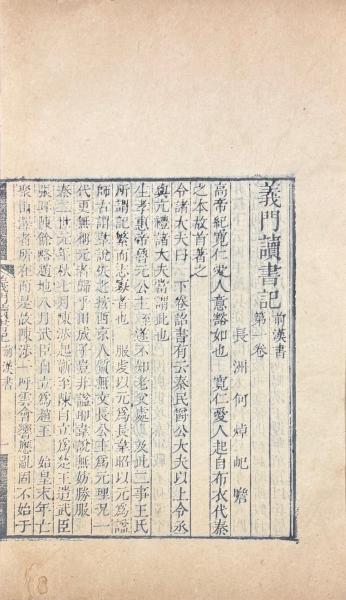 義門讀書記 前漢書 第一卷
長洲何焯屺瞻
高帝紀寬仁愛人意豁如也 寬仁愛人起自布衣代秦
之本故首著之
令諸大夫曰 下卷詔書有云秦民爵公大夫以上令丞
與亢禮諸大夫當謂此也
生孝惠帝魯元公主 遂不知老父處 及此二事王氏
所謂記繁而志寡者也 服虔以元爲長韋昭以元爲謚
師古謂韋說失之按西京人質無女長公主爲元理況一
代更無稱元者歸乎田成子豈非謚耶韋說無妨勝服
秦二世元年秋七月陳涉起蘄至陳自立爲楚王遣武臣
張耳陳餘略趙地八月武臣自立爲趙王 始皇末年亡
聚山澤者所在而是故陳涉一呼雲會響應亂固不始于
義門讀書記 前漢書